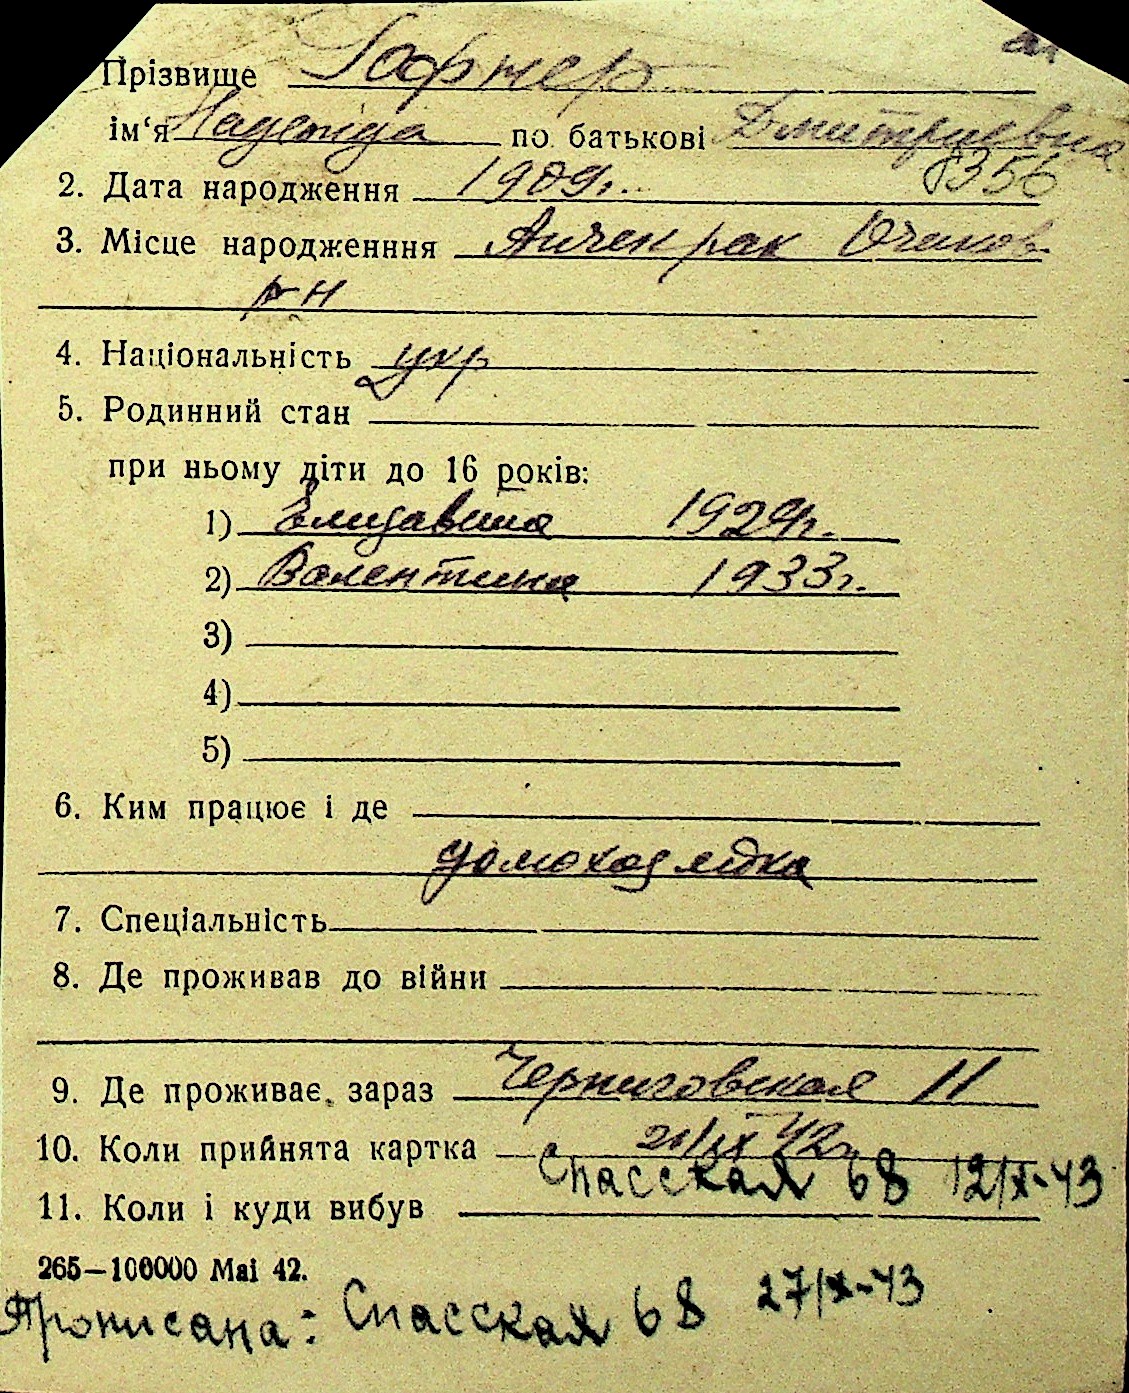 Прізвище Гофнер
ім‘я Надежда по батькові Дмитриевна
2. Дата народження 1909г. 8356
3. Місце народженння Анчекрак Очаков
р-н
4. Національність укр
5. Родинний стан
при ньому діти до 16 років:
1) Елизавета 1929г.
2) Валентина 1933г.
3)
4)
5)
6. Ким працює і де
домохозяйка
7. Спеціальність
8. Де проживав до війни
9. Де проживає зараз Черниговская 11
10. Коли прийнята картка 21/IX 42г.
Спасская 68 12/X-43
11. Коли і куди вибув
265—100000 Mai 42.
Прописана: Спасская 68 27/X-43